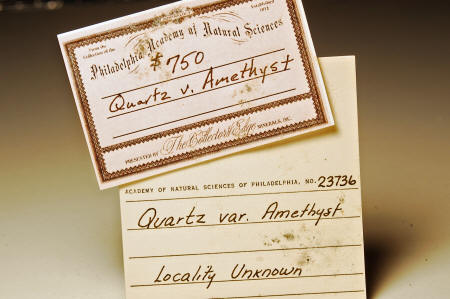 From the Collection of the
Established 1812
Philadelphia Academy of Natural Sciences
$750
Quartz v. Amethyst
PRESENTED BY The Collector's Edge MINERALS, INC.
ACADEMY OF NATURAL SCIENCES OF PHILADELPHIA, NO. 23736
Quartz var. Amethyst
Locality Unknown